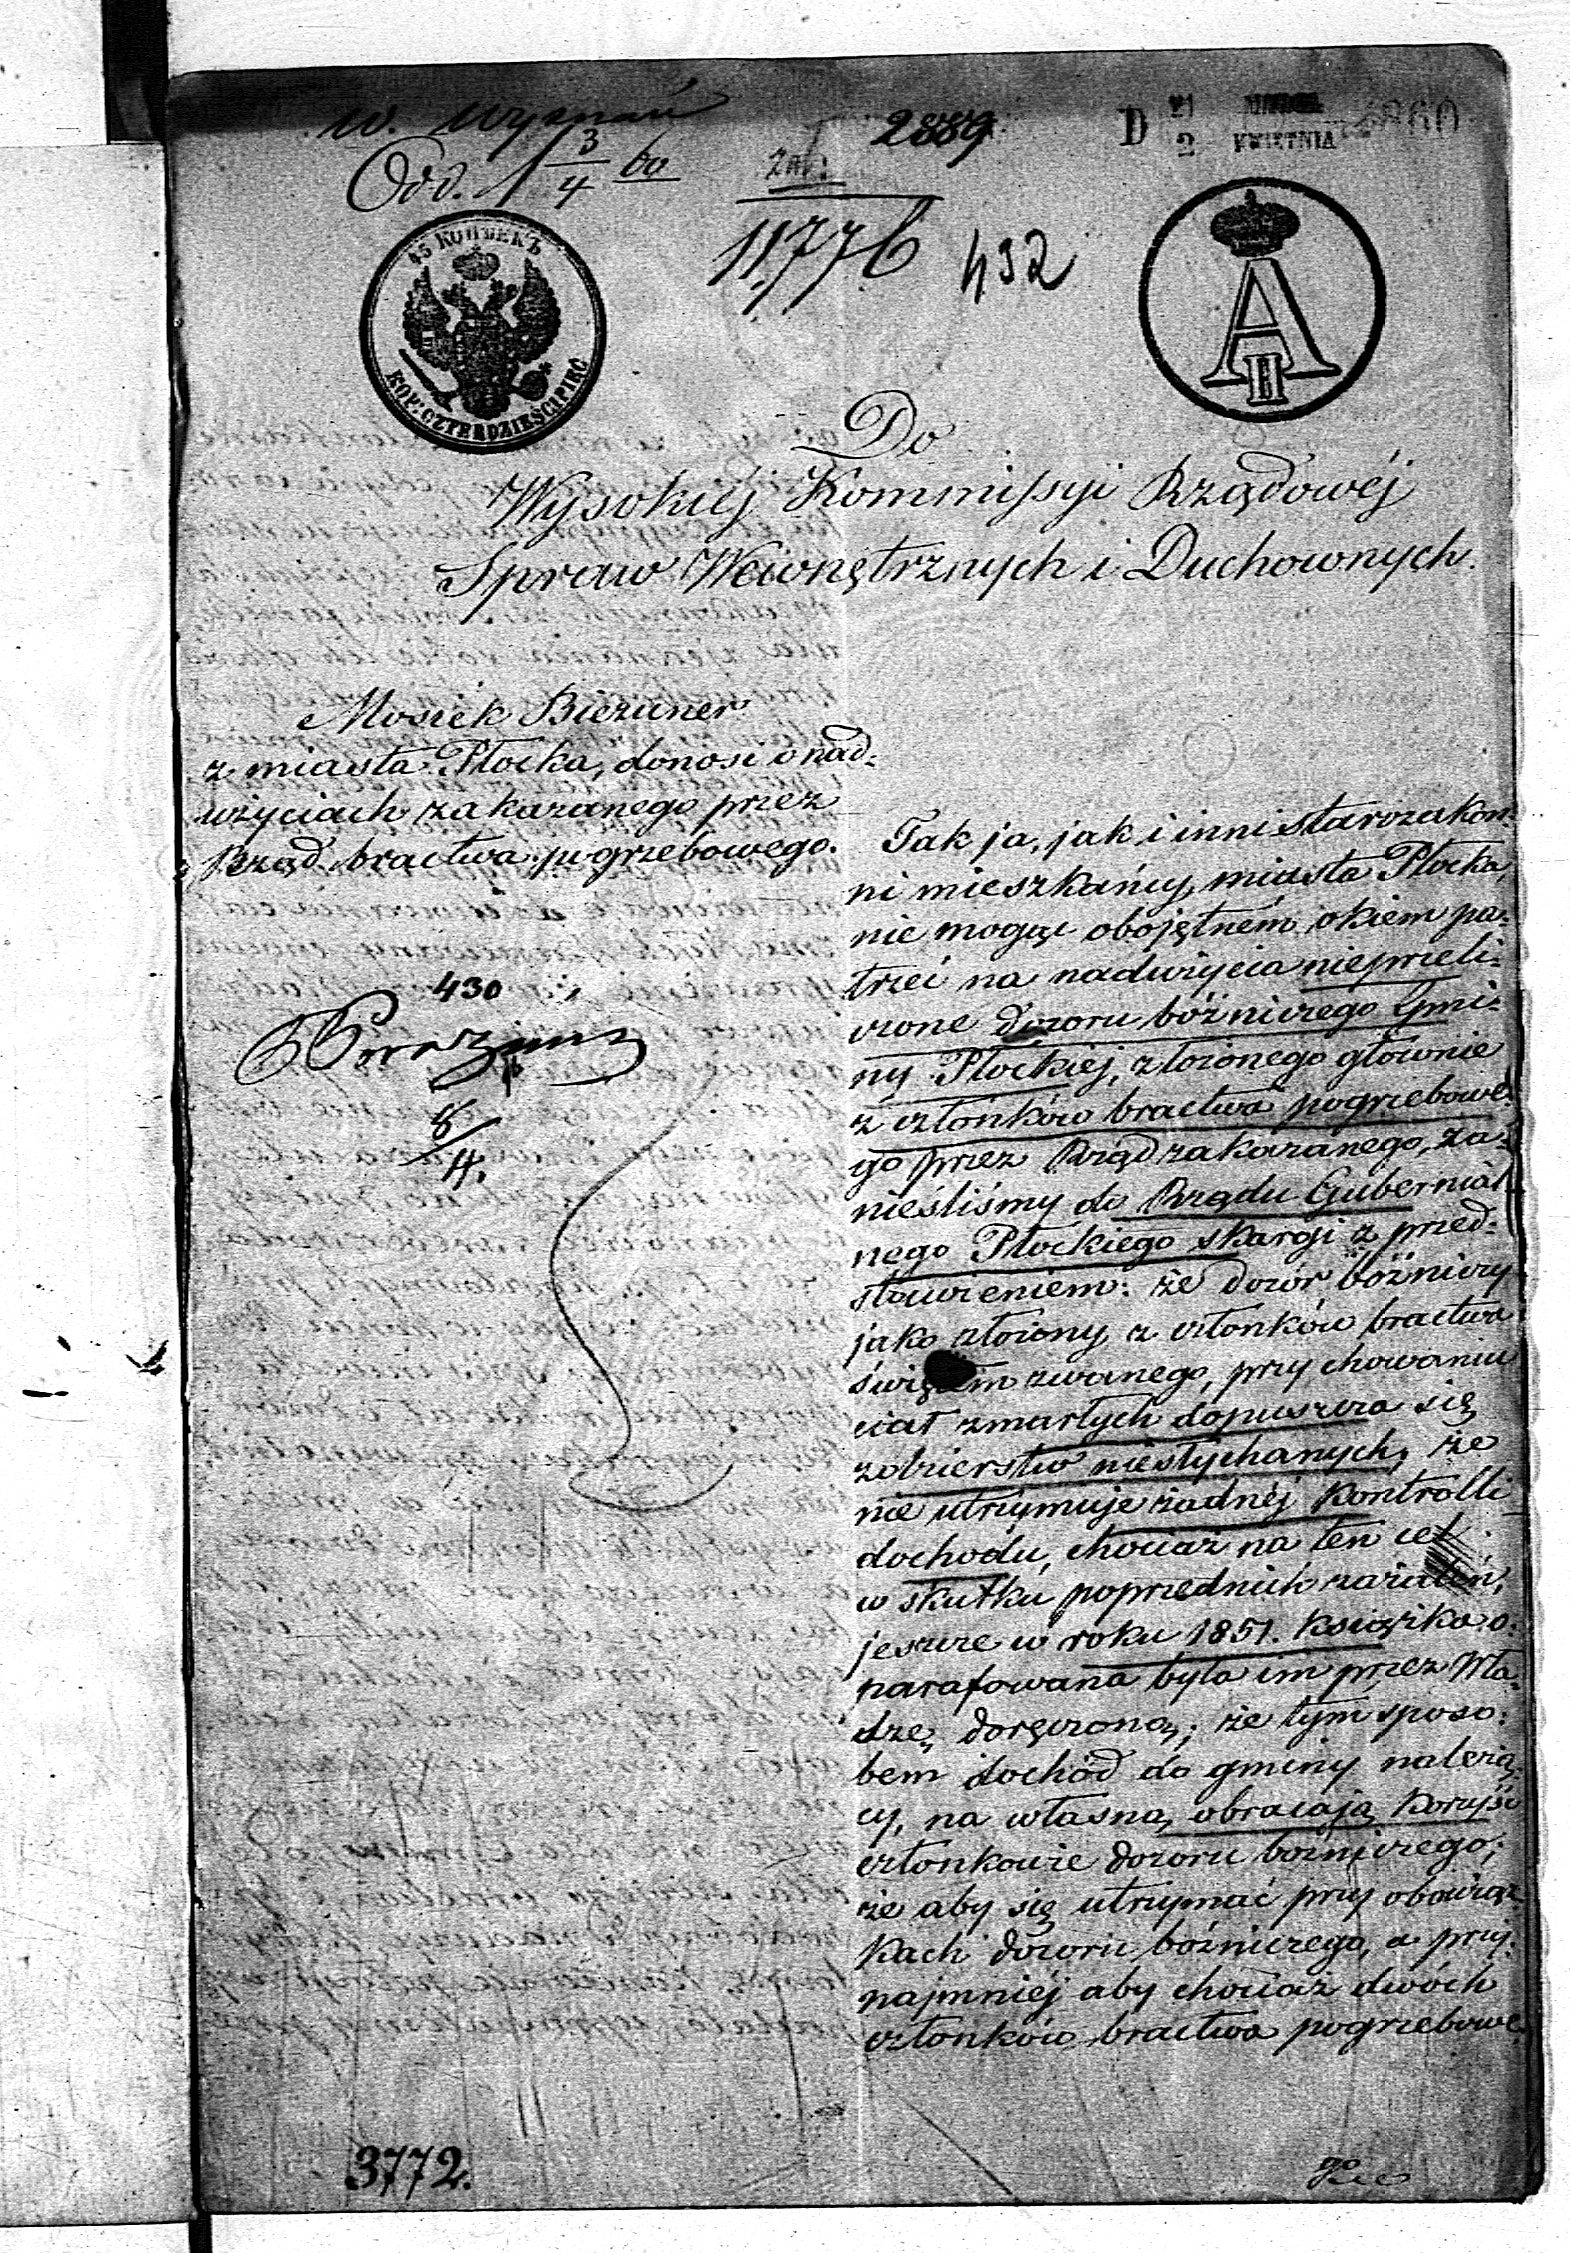 w. wyznań
Odd. 1 3/4 60
zał:
2889
D 21 MARCA 1860
2 KWIETNIA
11776
432
45 КОПѢЕКЪ
KOP: CZTERDZIEŚCI PIĘĆ
A II
Do
Wysokiéj Kommissyi Rządowéj
Spraw Wewnętrznych i Duchownych.
Mosiek Bieżuner
z miasta Płocka, donosi o nad-
użyciach zakazanego przez
Rząd bractwa pogrzebowego.
430
8/4.
Tak ja, jak i inni starozakon-
ni mieszkańcy miasta Płocka,
nie mogąc obojętném okiem pa-
trzeć na nadużycia nieprzeli-
czone dozoru bóżniczego Gmi-
ny Płockiej, złożonego głównie
z członków bractwa pogrzebowe-
go przez Rząd zakazanego, za-
nieśliśmy do Rządu Gubernial-
nego Płockiego skargi z przed-
stawieniem: że dozór bóżniczy
jako złożony z członków bractwa
świętem zwanego, przy chowaniu
ciał zmarłych dopuszcza się
zdzierstw niesłychanych, że
nie utrzymuje żadnéj kontrolli
dochodu, chociaż na ten cel
w skutku poprzednich zażaleń,
jeszcze w roku 1851. książka o-
parafowana była im przez Wła-
dzę doręczoną; że tym sposo-
bem dochód do gminy należą-
cy, na własną obracają korzyść
członkowie dozoru bożniczego;
że aby się utrzymać przy obowiąz-
kach dozoru bóżniczego, a przy-
najmniéj aby chociaż dwóch
członków bractwa pogrzebowe-
go
3772.